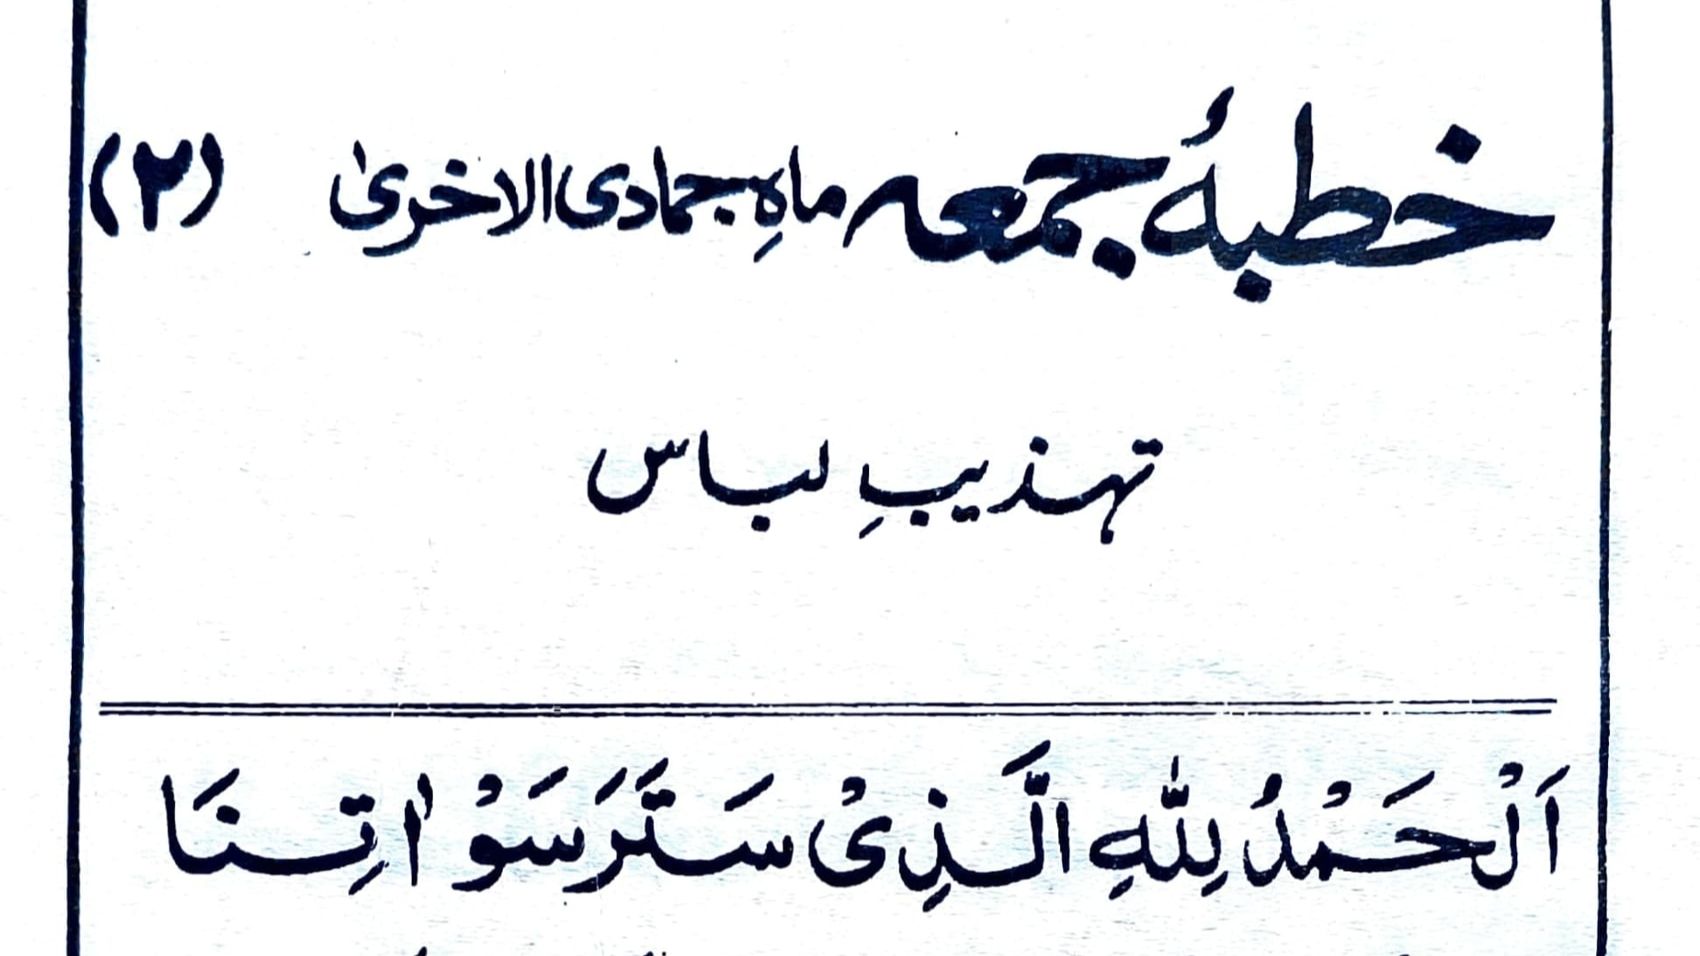 خطبۂ جمعہ ماہِ جمادی الاخریٰ (۲)
تہذیبِ لباس
اَلْحَمْدُ لِلّٰهِ الَّذِىْ سَتَرَ سَوْاٰتِنَا